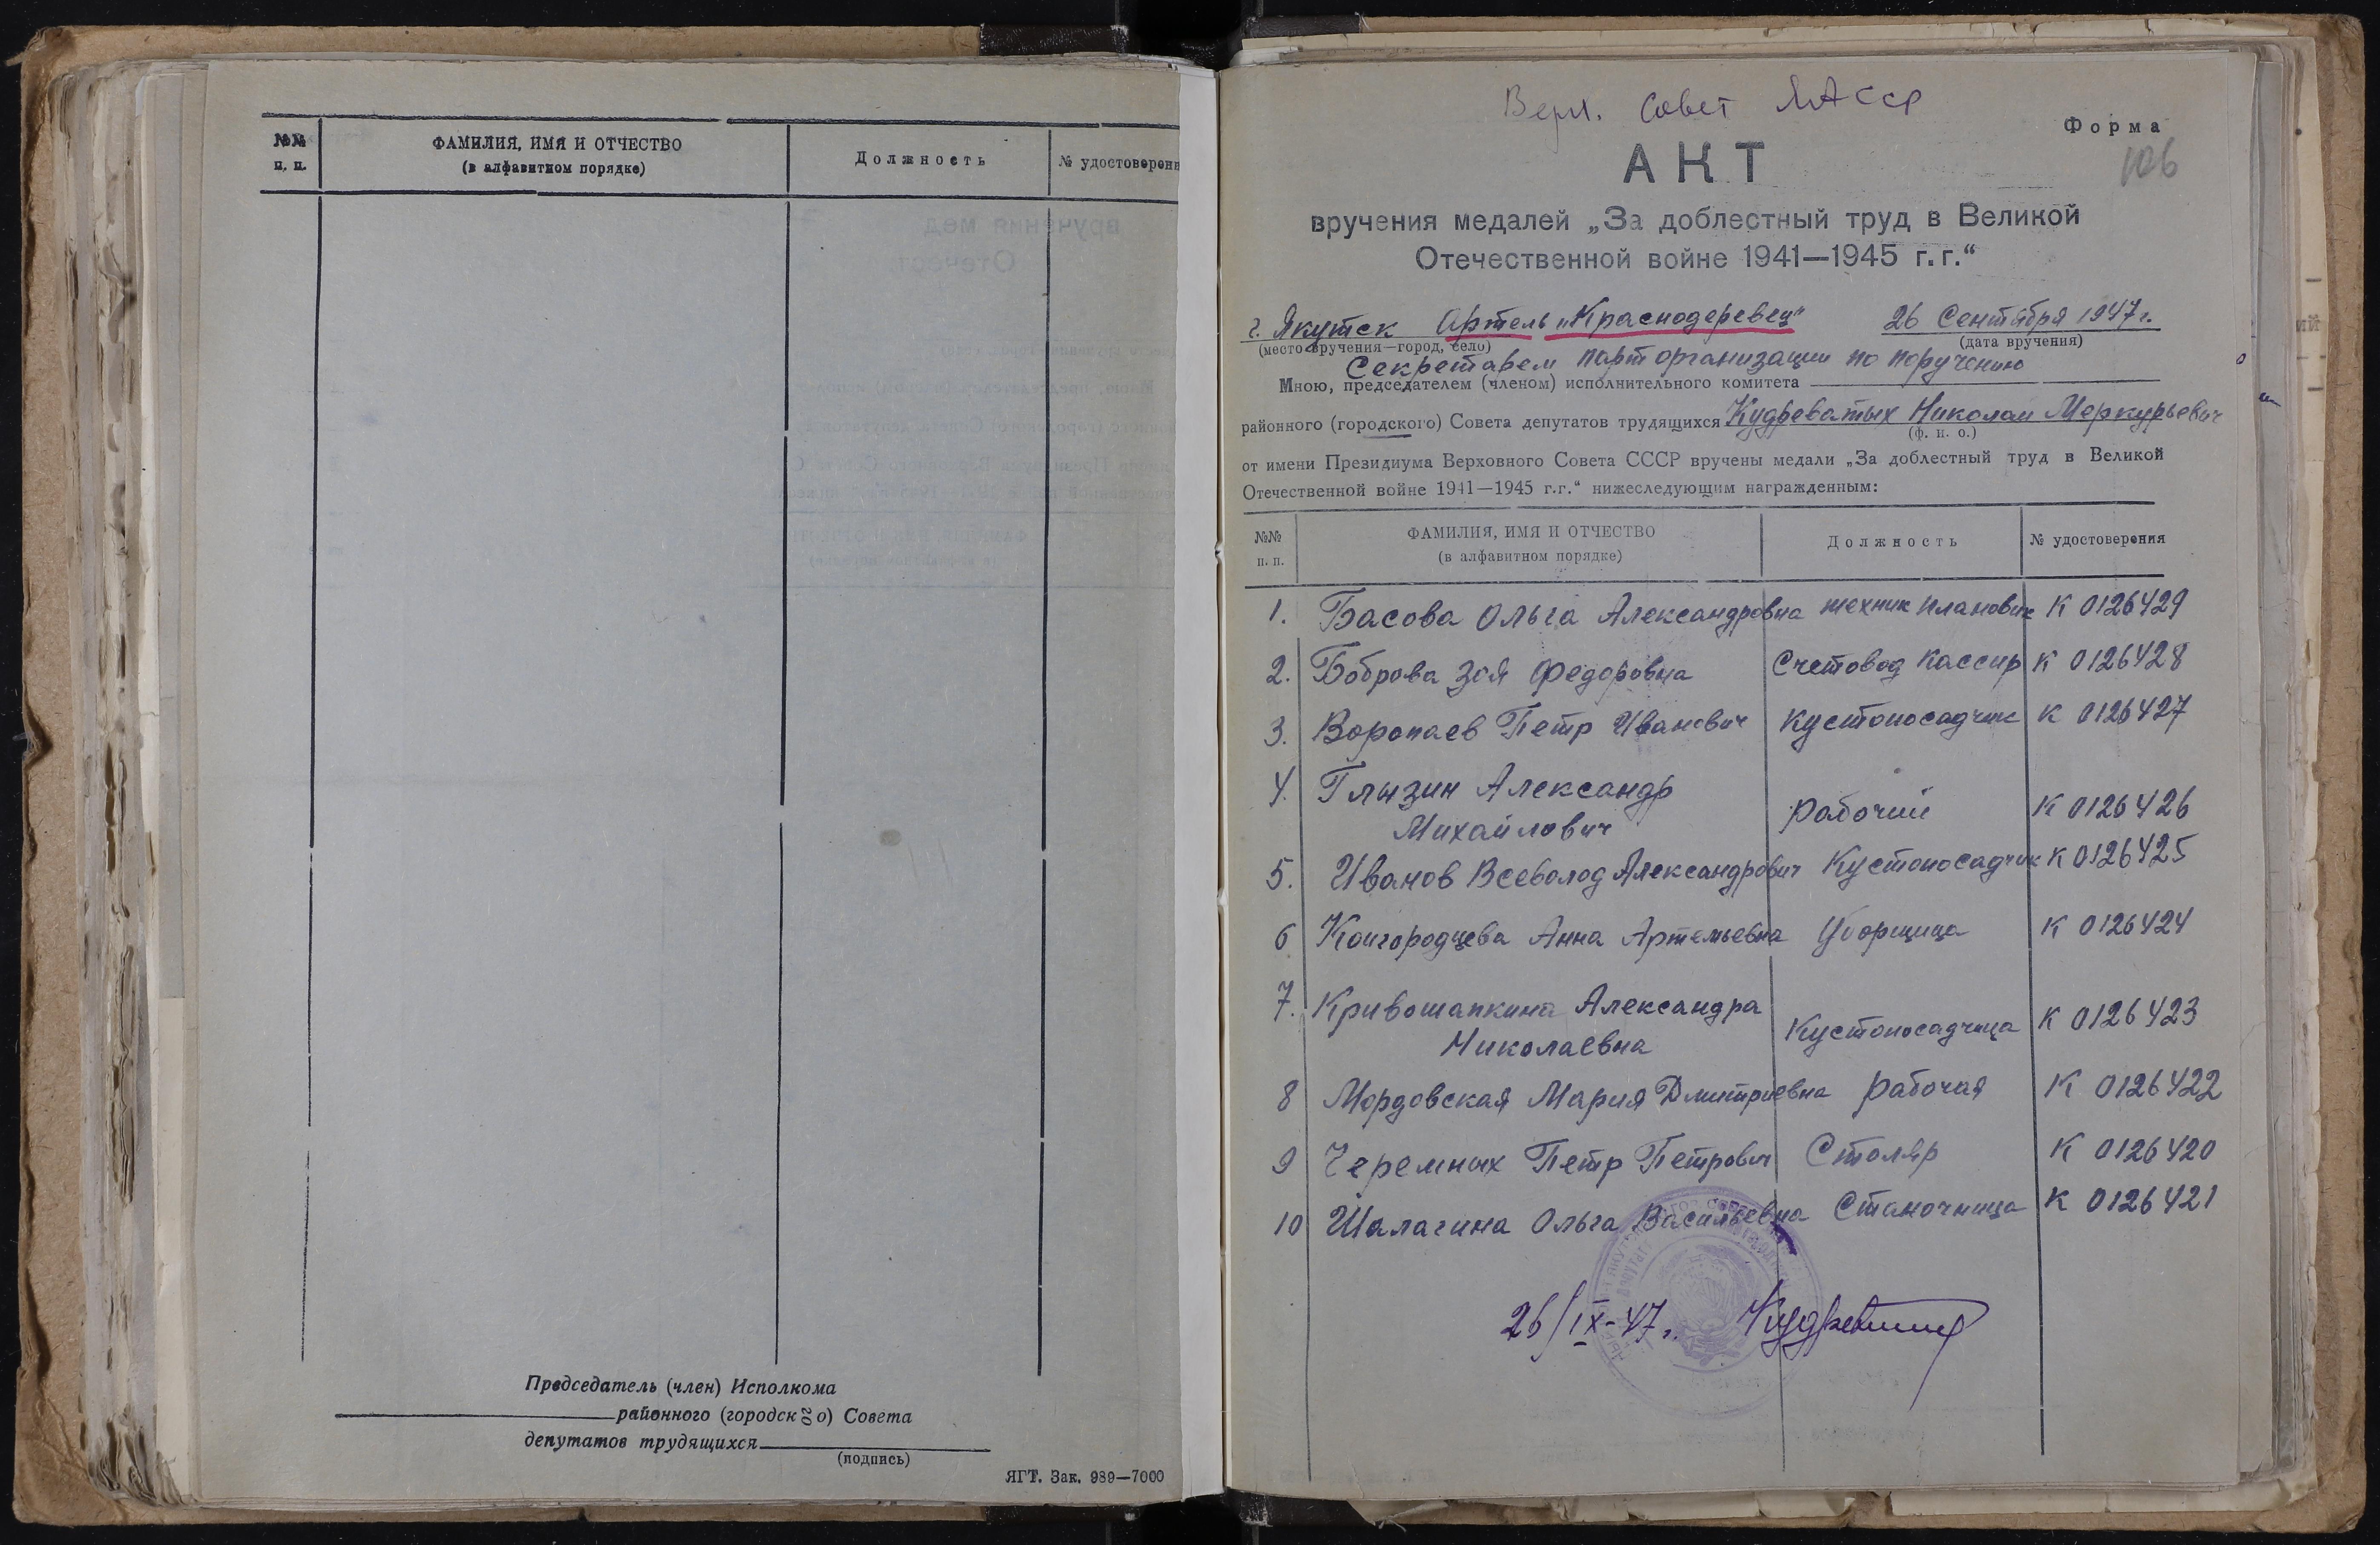 №№
п. п.
ФАМИЛИЯ, ИМЯ И ОТЧЕСТВО
(в алфавитном порядке)
Должность
№ удостоверени
Председатель (член) Исполкома
районного (городского) Совета
депутатов трудящихся
(подпись)
ЯГТ. Зак. 989—7000
Верх. Совет ЯАССР
Форма
106
АКТ
вручения медалей „За доблестный труд в Великой
Отечественной войне 1941—1945 г.г.“
г. Якутск Артель „Краснодеревец" 26 Сентября 1947 г.
(место вручения—город, село) (дата вручения)
Секретарем парторганизации по поручению
Мною, председателем (членом) исполнительного комитета
районного (городского) Совета депутатов трудящихся Кудреватых Николаи Меркурьевич
(ф. и. о.)
от имени Президиума Верховного Совета СССР вручены медали „За доблестный труд в Великой
Отечественной войне 1941—1945 г.г.“ нижеследующим награжденным:
№№ п. п. ФАМИЛИЯ, ИМЯ И ОТЧЕСТВО (в алфавитном порядке) Должность № удостоверения
1. Басова Ольга Александровна техник плановик К 0126429
2. Боброва Зоя Федоровна Счетовод Кассир К 0126428
3. Воропаев Петр Иванович Кустоносадчик К 0126427
4. Глызин Александр
Михайлович рабочий К 0126426
5. Иванов Всеволод Александрович Кустоносадчик К 0126425
6 Конгородцева Анна Артемьевна Уборщица К 0126424
7. Кривошапкина Александра
Николаевна Кустоносадчица К 0126423
8 Мордовская Мария Дмитриевна рабочая К 0126422
9 Черемных Петр Петрович Столяр К 0126420
10 Шалагина Ольга Васильевна Станочница К 0126421
26/IX-47 г.